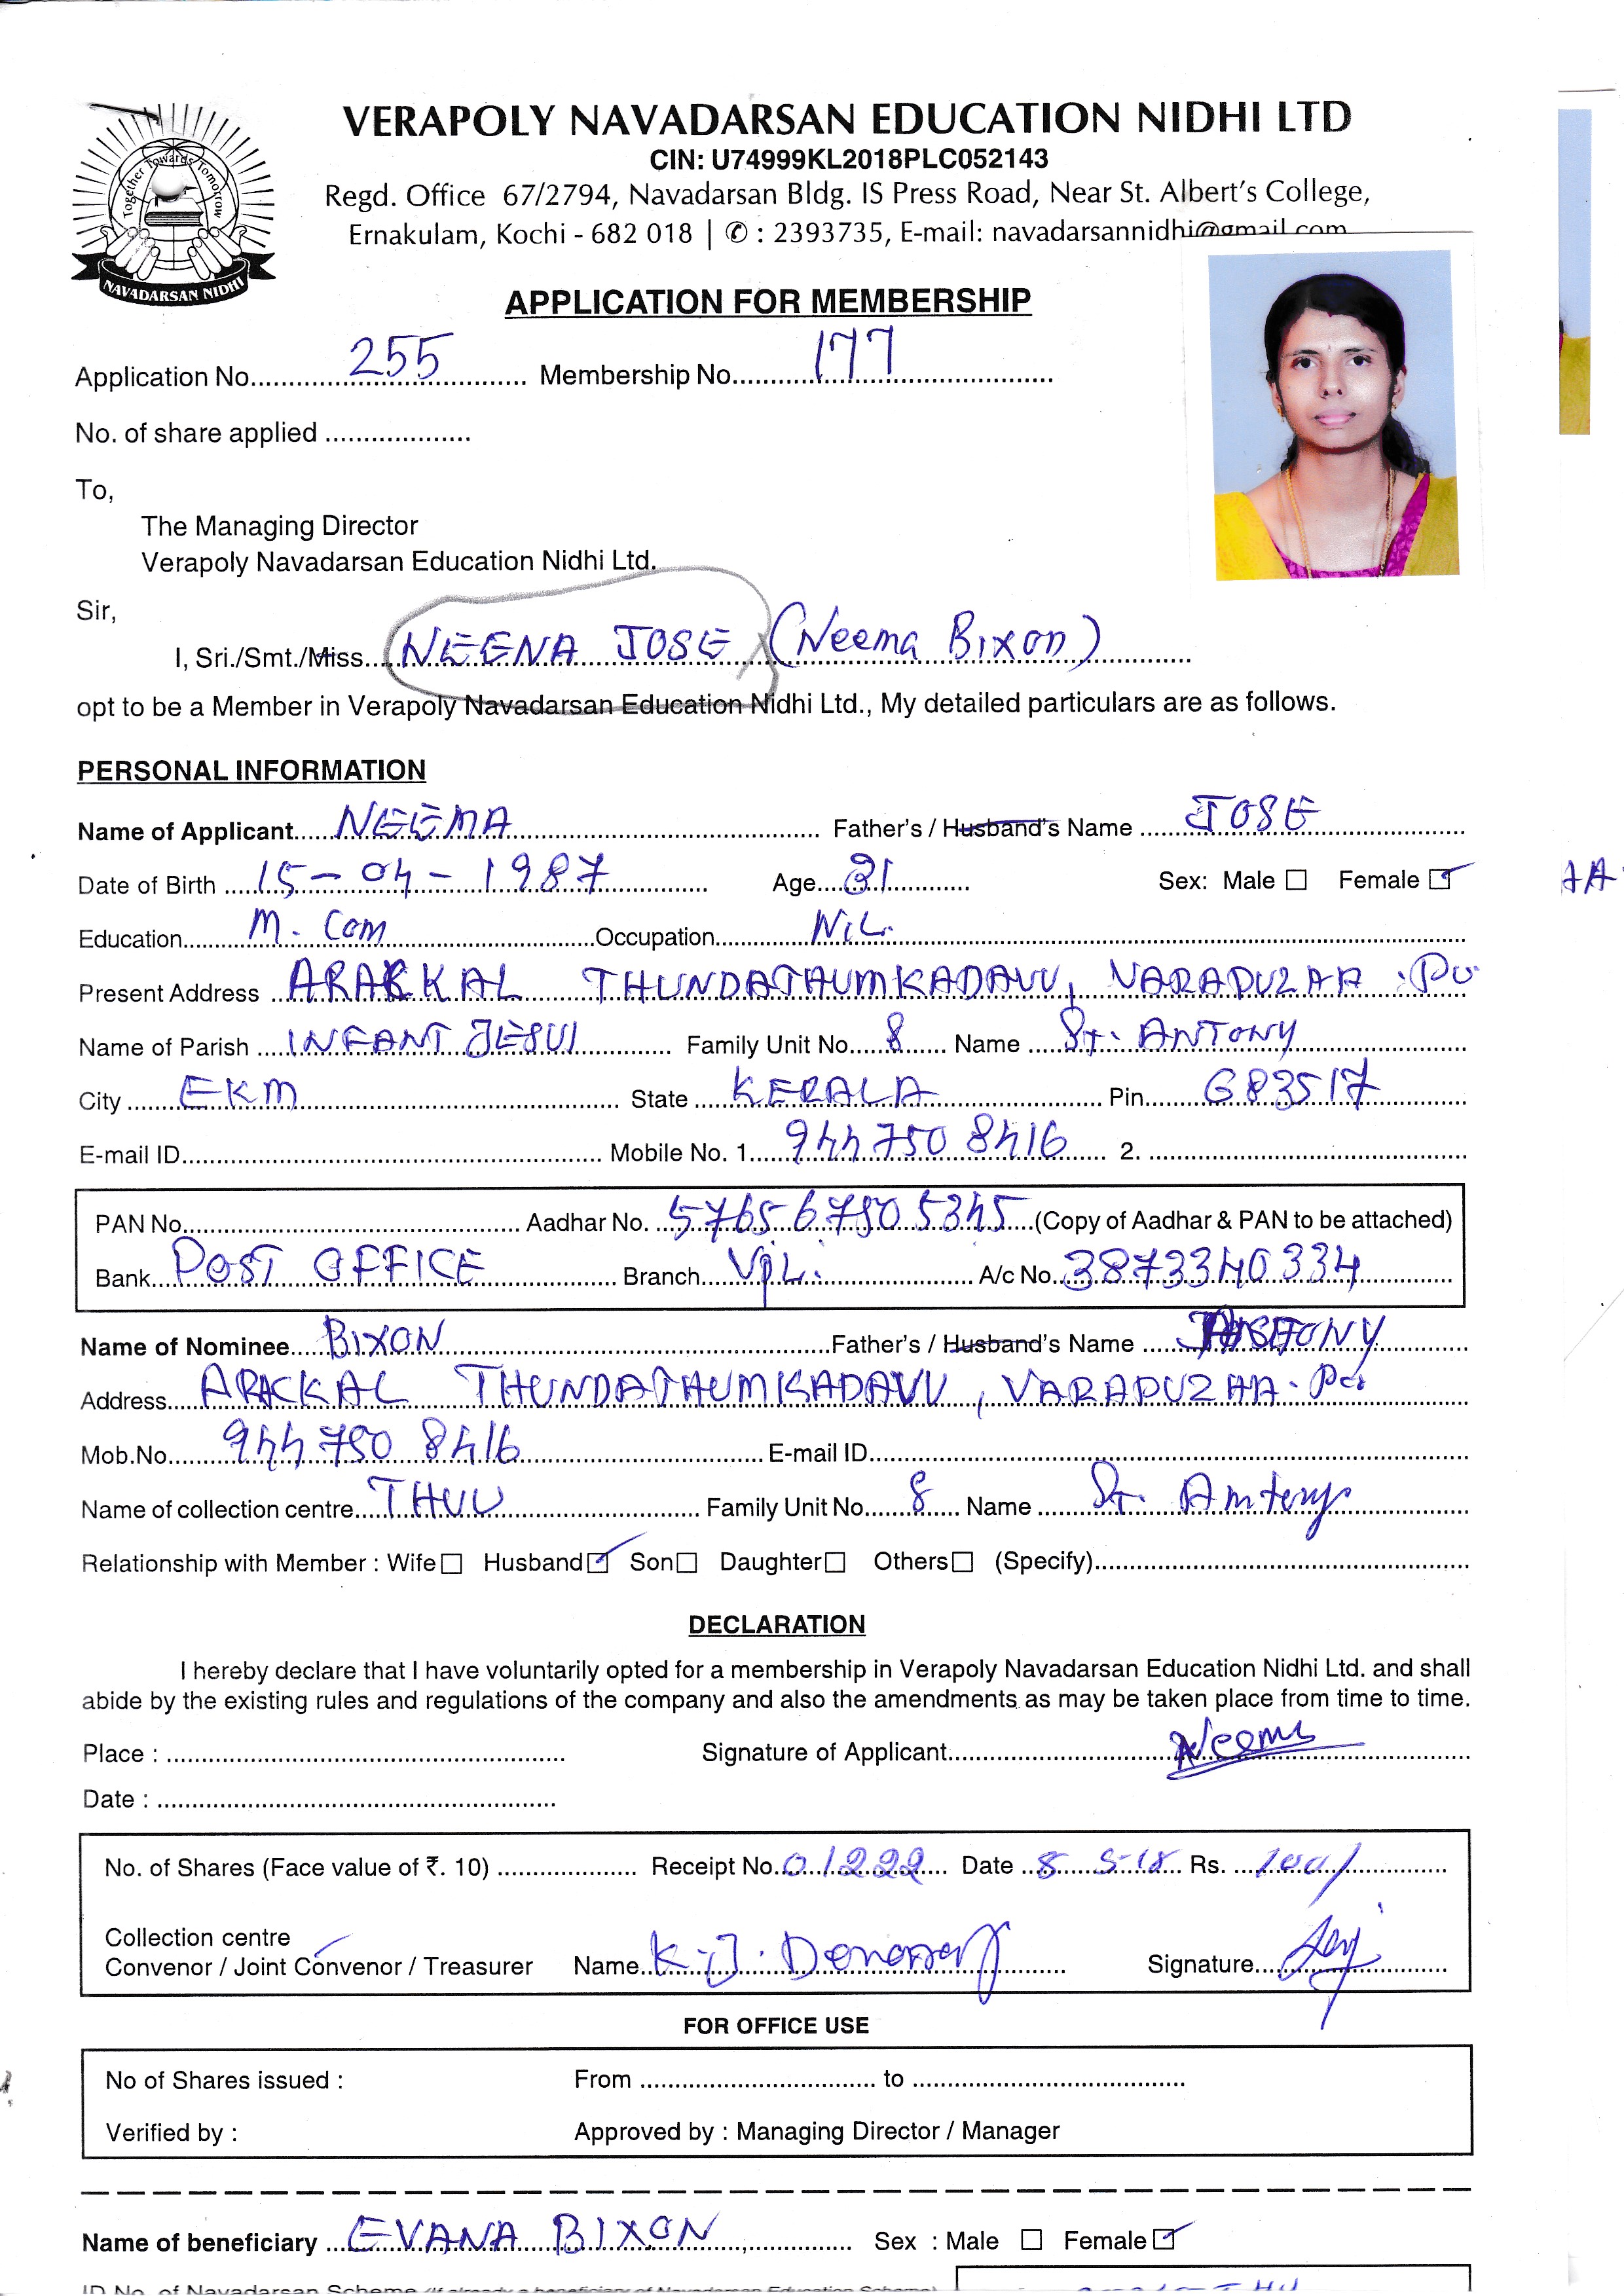 VERAPOLY NAVADARSAN EDUCATION NIDHI LTD
CIN: U74999KL2018PLC052143
Regd. Office 67/2794, Navadarsan Bldg. IS Press Road, Near St. Albert's College,
Ernakulam, Kochi - 682 018 | ✆ : 2393735, E-mail: navadarsannidhi@gmail.com
Together Towards Tomorrow
NAVADARSAN NIDHI
APPLICATION FOR MEMBERSHIP
Application No. 255 Membership No. 177
No. of share applied
To,
The Managing Director
Verapoly Navadarsan Education Nidhi Ltd.
Sir,
I, Sri./Smt./Miss. NEENA JOSE (Neema Bixon)
opt to be a Member in Verapoly Navadarsan Education Nidhi Ltd., My detailed particulars are as follows.
PERSONAL INFORMATION
Name of Applicant NEEMA Father's / Husband's Name JOSE
Date of Birth 15-04-1987 Age 31 Sex: Male ☐ Female ☑
Education M. Com Occupation NiL.
Present Address ARACKAL THUNDATHUMKADAVU, VARAPUZHA .Po
Name of Parish INFANT JESUI Family Unit No. 8 Name St. ANTONY
City EKM State KERALA Pin 683517
E-mail ID Mobile No. 1 944 750 8416 2.
PAN No. Aadhar No. 5765 6750 5345 (Copy of Aadhar & PAN to be attached)
Bank POST OFFICE Branch VpL. A/c No. 3873340334
Name of Nominee BIXON Father's / Husband's Name
Address ARACKAL THUNDATHUMKADAVU, VARAPUZHA. Po
Mob.No. 944 750 8416 E-mail ID
Name of collection centre THUU Family Unit No. 8 Name St. Antony
Relationship with Member : Wife ☐ Husband ☑ Son ☐ Daughter ☐ Others ☐ (Specify)
DECLARATION
I hereby declare that I have voluntarily opted for a membership in Verapoly Navadarsan Education Nidhi Ltd. and shall
abide by the existing rules and regulations of the company and also the amendments as may be taken place from time to time.
Place : Signature of Applicant Neema
Date :
No. of Shares (Face value of ₹. 10) Receipt No. 01222 Date 8 5-18 Rs. 100/
Collection centre
Convenor / Joint Convenor / Treasurer Name K.J. Signature
FOR OFFICE USE
No of Shares issued : From to
Verified by : Approved by : Managing Director / Manager
Name of beneficiary EVANA BIXON Sex : Male ☐ Female ☑
ID No. of Navadarsan Scheme (If already a beneficiary of Navadarsan Education Scheme)